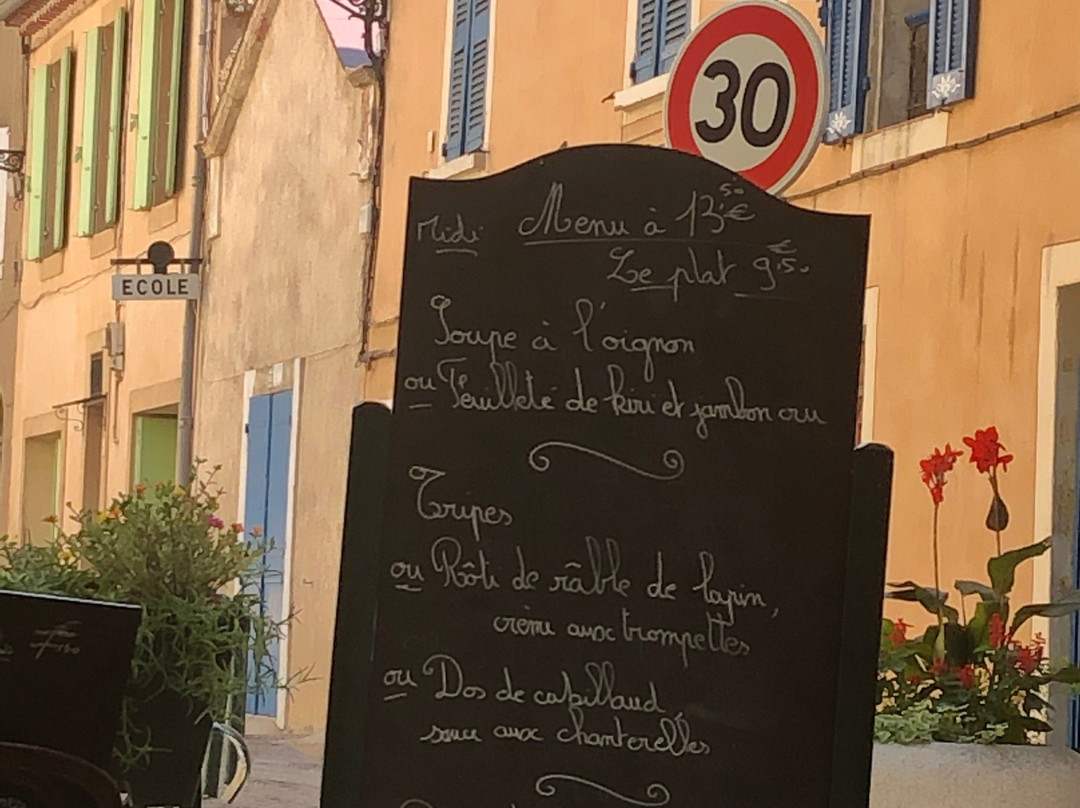 30
ECOLE
Midi Menu à 13,50€
Le plat 9€50
Soupe à l'oignon
ou Feuilleté de kiri et jambon cru
Tripes
ou Rôti de râble de lapin,
crème aux trompettes
ou Dos de cabillaud,
sauce aux chanterelles